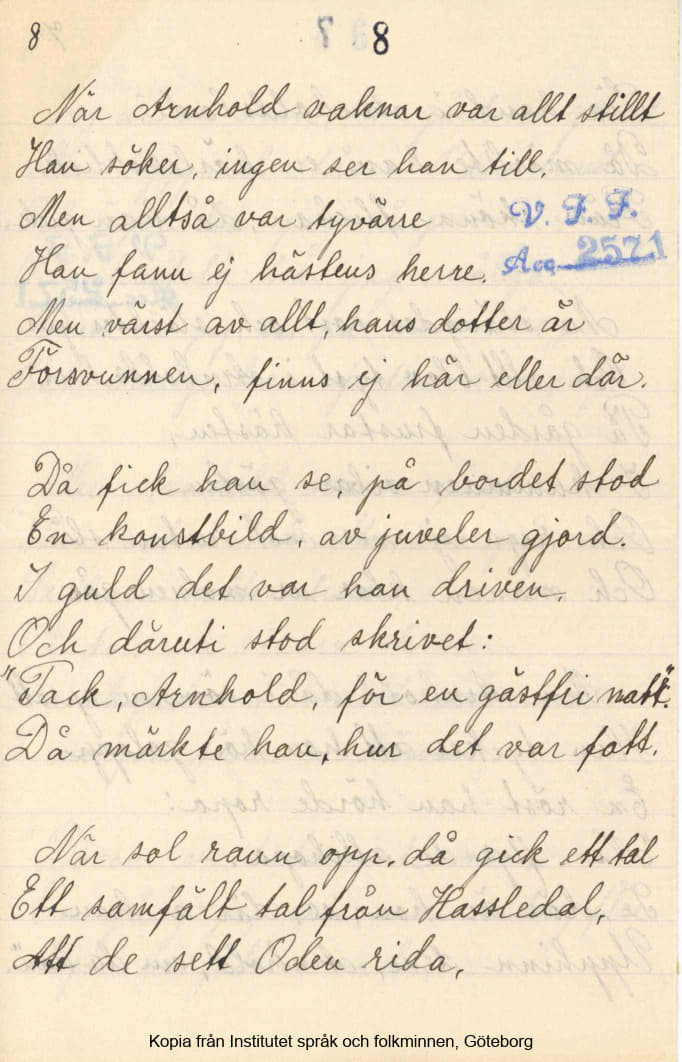 8
8
När Arnhold vaknar var allt stillt
Han söker, ingen ser han till.
Men alltså var tyvärre
V. F. F.
Han fann ej hästens herre.
Acc. 2571
Men värst av allt, hans dotter är
Försvunnen, finns ej här eller där.
Då fick han se, på bordet stod
En konstbild, av juveler gjord.
I guld det var han driven.
Och däruti stod skrivet:
"Tack, Arnhold, för en gästfri natt".
Då märkte han, hur det var fatt.
När sol rann opp, då gick ett tal
Ett samfält tal från Hassledal,
Att de sett Oden rida,
Kopia från Institutet språk och folkminnen, Göteborg